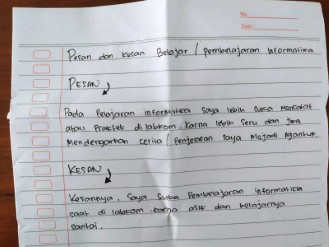 No :
Date :
Pesan dan Kesan Belajar / pembelajaran Informatika
PESAN
Pada Pelajaran informatika Saya lebih Suka
atau di labkom. Karna lebih Seru dan
Mendengarkan cerita / Penjelasan Saya Mejadi
KESAN
Kesannya, Saya Suka Pembelajaran Informatika
saat di labkom. karna asik dan belajarnya
Santai.